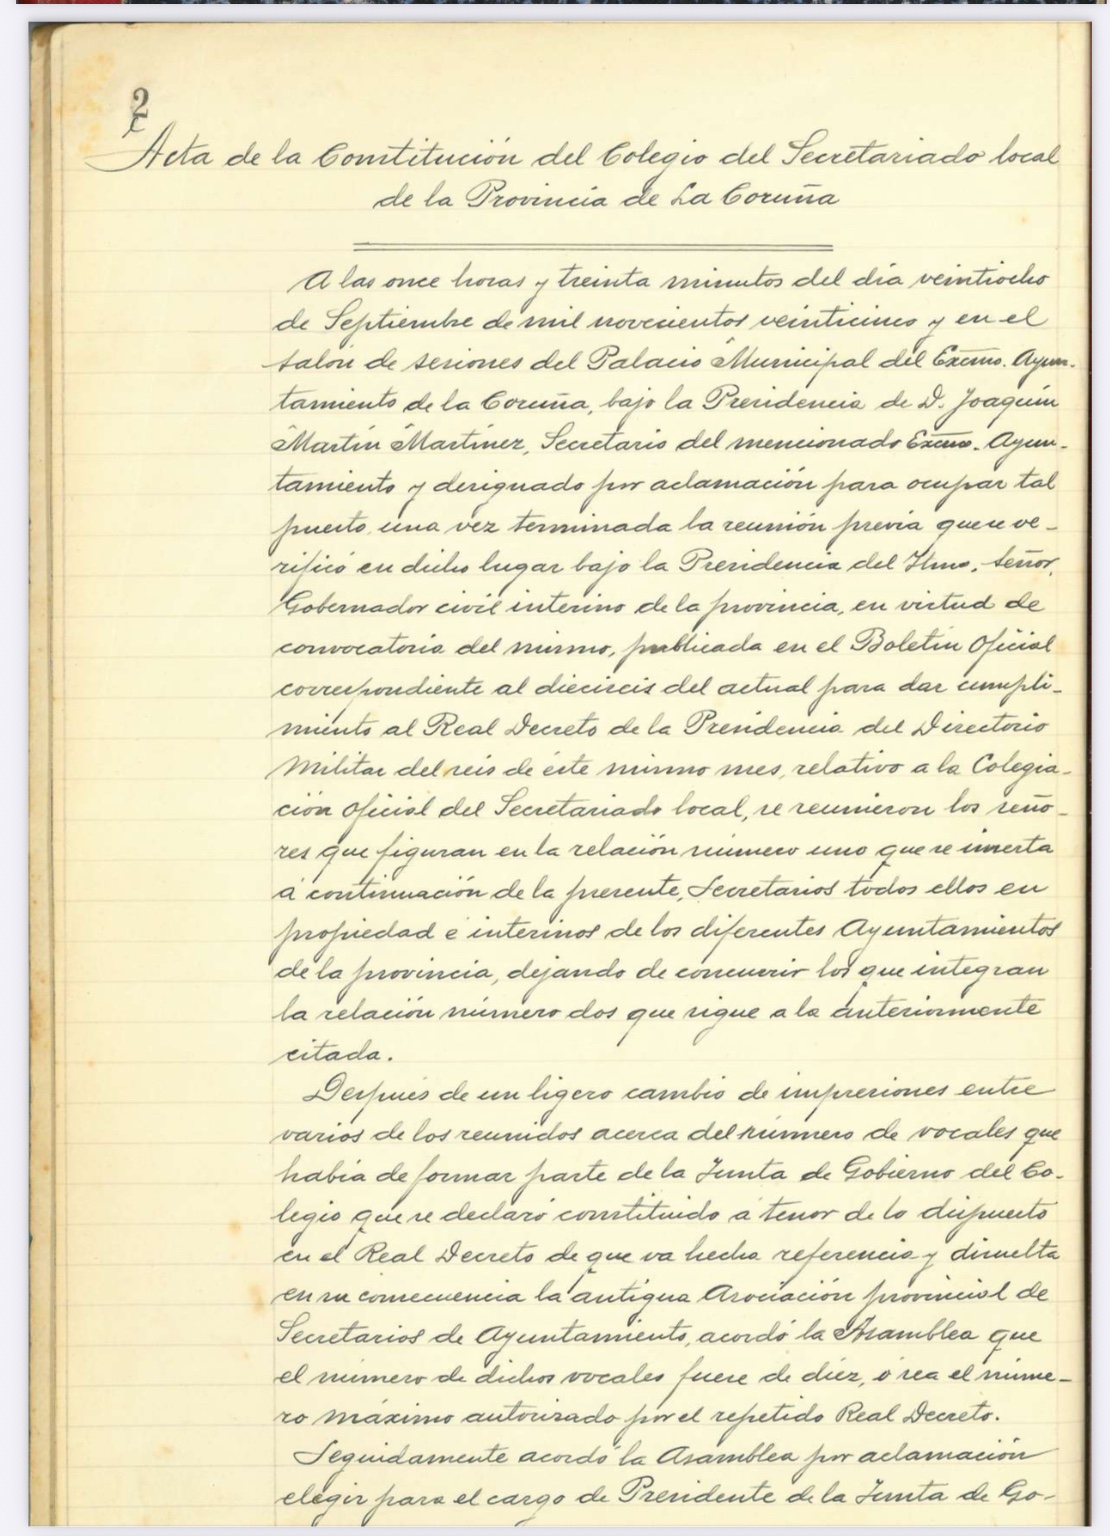 2
Acta de la Constitución del Colegio del Secretariado local
de la Provincia de La Coruña
A las once horas y treinta minutos del día veintiocho
de Septiembre de mil novecientos veinticinco y en el
salón de sesiones del Palacio Municipal del Excmo. Ayun-
tamiento de la Coruña, bajo la Presidencia de D. Joaquín
Martín Martínez, Secretario del mencionado Excmo. Ayun-
tamiento y designado por aclamación para ocupar tal
puesto una vez terminada la reunión previa que se ve-
rificó en dicho lugar bajo la Presidencia del Iltmo. señor,
Gobernador civil interino de la provincia, en virtud de
convocatoria del mismo, publicada en el Boletín Oficial
correspondiente al dieciseis del actual para dar cumpli-
miento al Real Decreto de la Presidencia del Directorio
Militar del seis de éste mismo mes, relativo a la Colegia-
ción oficial del Secretariado local, se reunieron los seño-
res que figuran en la relación número uno que se inserta
á continuación de la presente, Secretarios todos ellos en
propiedad é interinos de los diferentes Ayuntamientos
de la provincia, dejando de concurrir los que integran
la relación número dos que sigue a la anteriormente
citada.
Después de un ligero cambio de impresiones entre
varios de los reunidos acerca del número de vocales que
había de formar parte de la Junta de Gobierno del Co-
legio que se declaró constituido a tenor de lo dispuesto
en el Real Decreto de que va hecha referencia y disuelta
en su consecuencia la antigua Asociación provincial de
Secretarios de Ayuntamiento, acordó la Asamblea que
el número de dichos vocales fuese de diez, ó sea el núme-
ro máximo autorizado por el repetido Real Decreto.
Seguidamente acordó la Asamblea por aclamación
elegir para el cargo de Presidente de la Junta de Go-